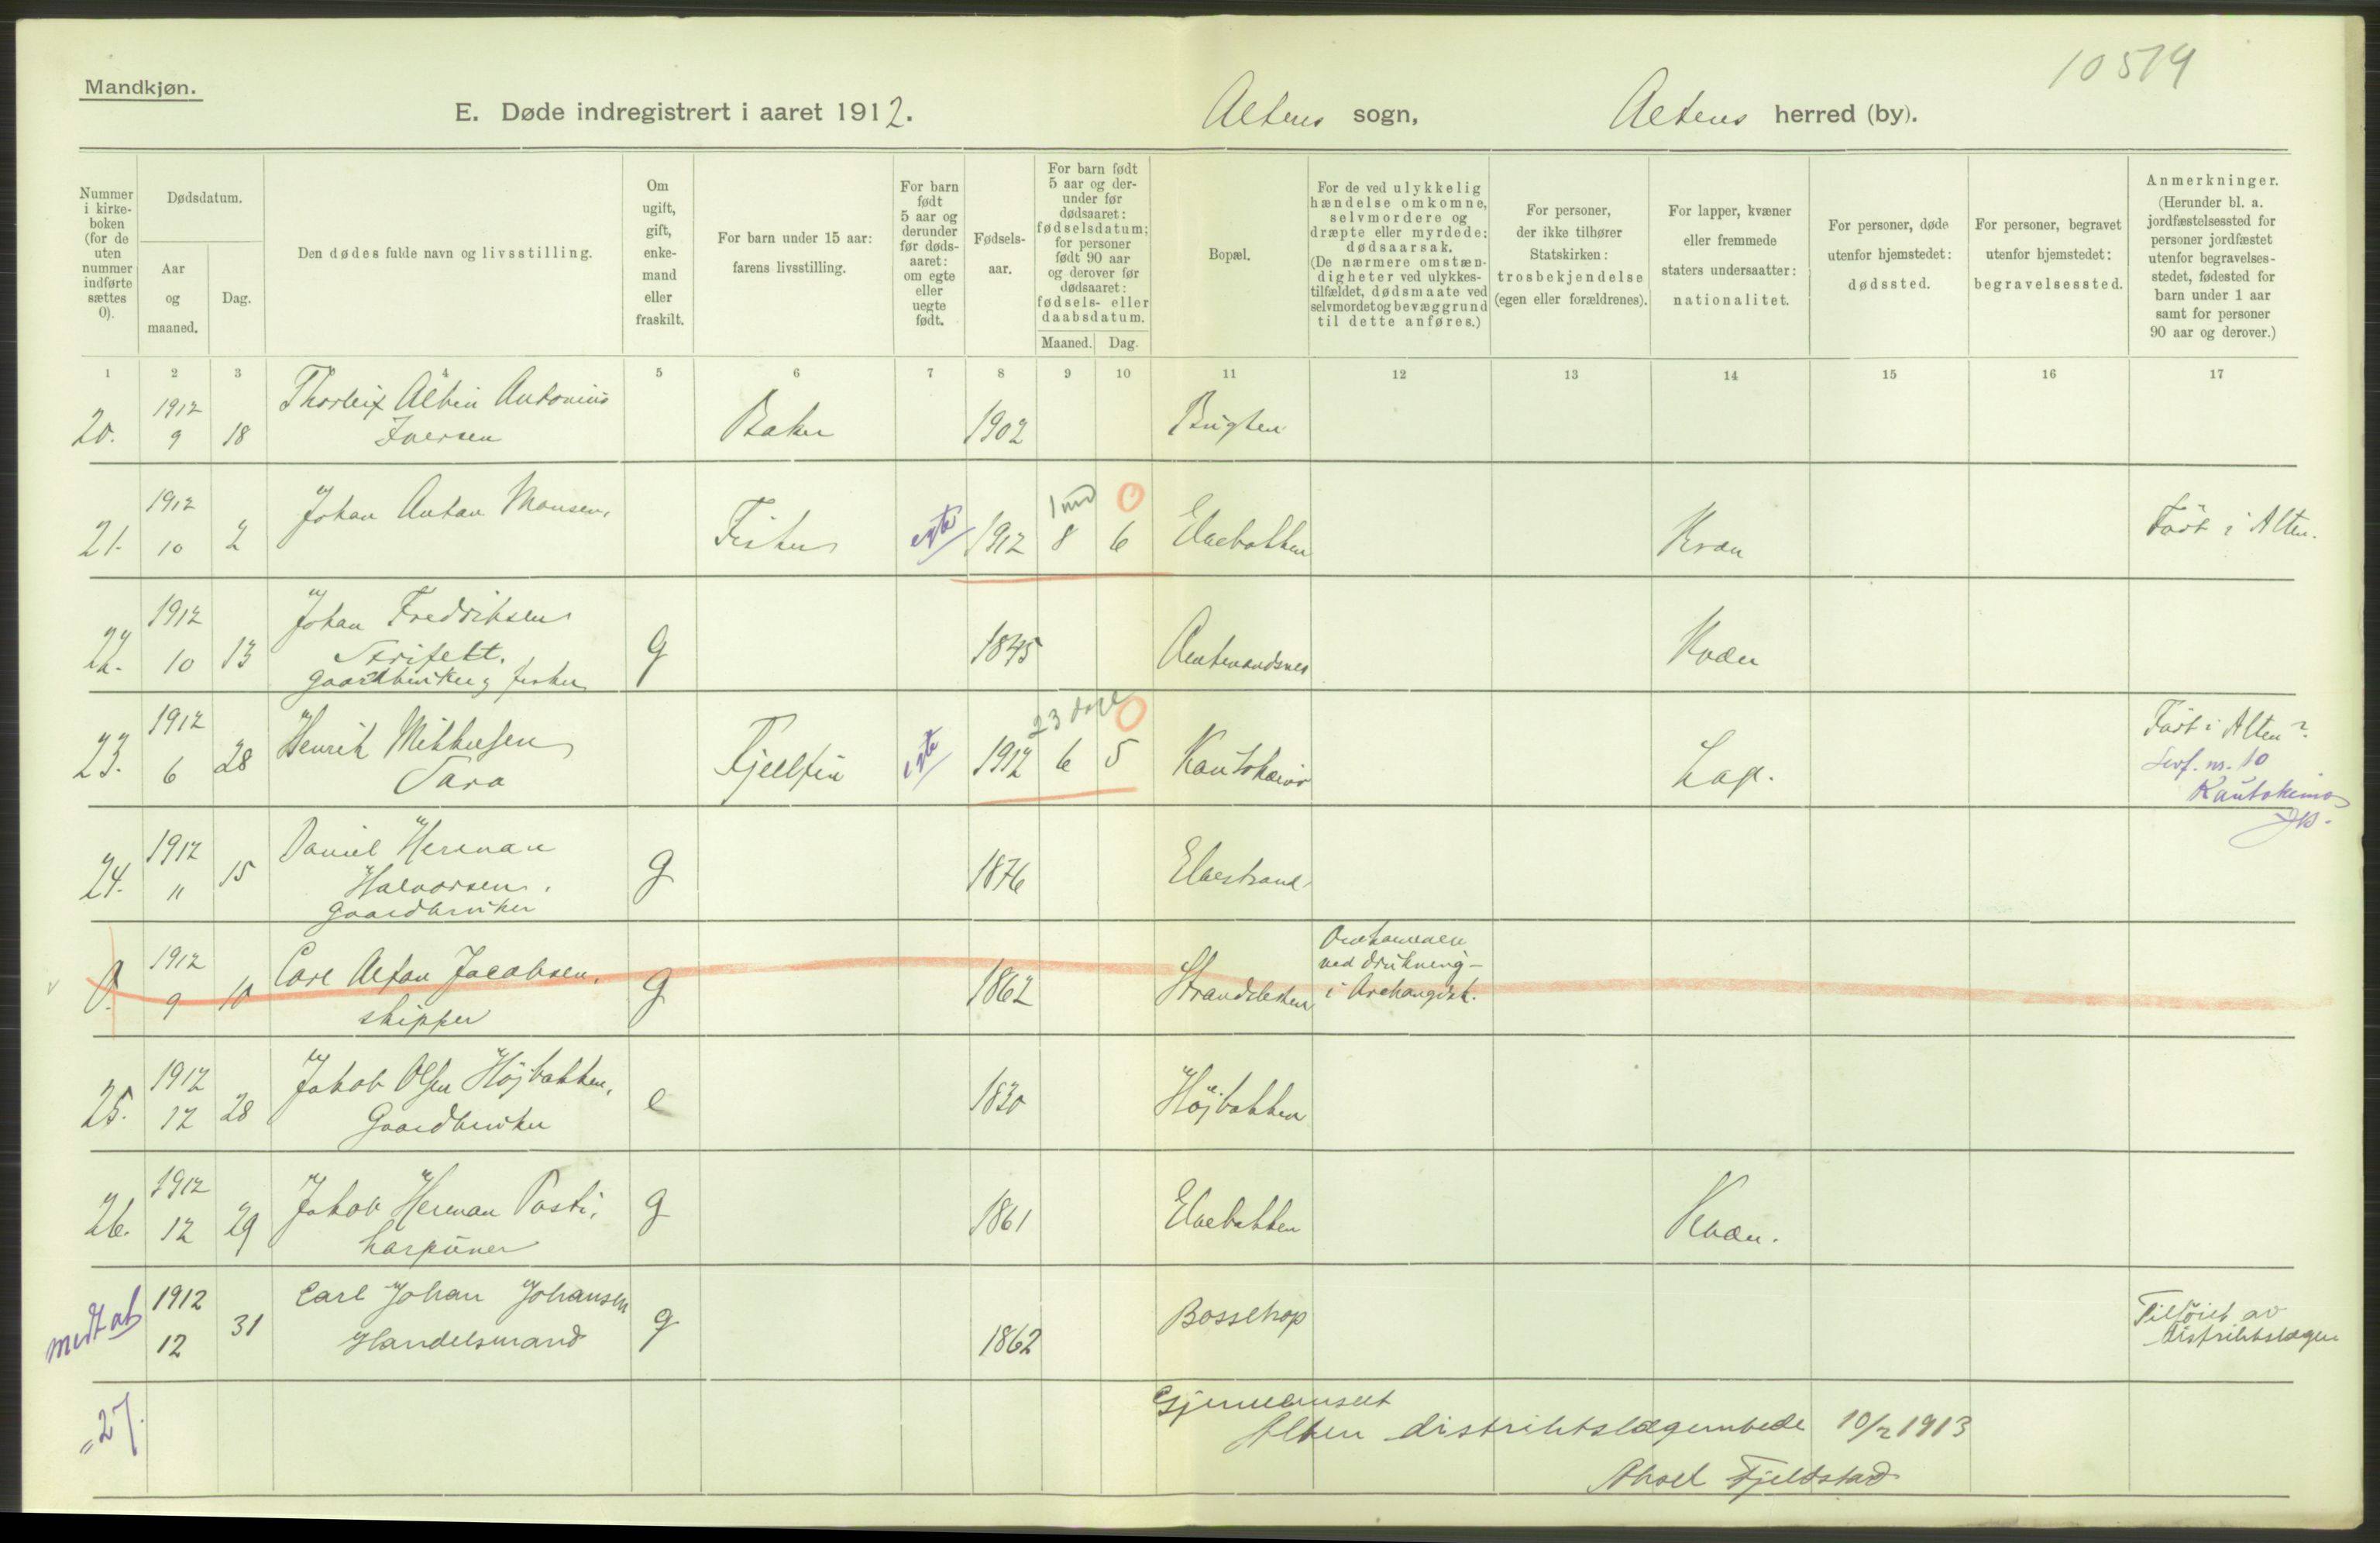 10519
Mandkjøn.
E. Døde indregistrert i aaret 1912.
Altens sogn,
Altens herred (by).
Nummer i kirke-boken (for de uten nummer indførte sættes 0).
Dødsdatum.
Aar og maaned.
Dag.
Den dødes fulde navn og livsstilling.
Om ugift, gift, enke-mand eller fraskilt.
For barn under 15 aar: farens livsstilling.
For barn født 5 aar og derunder før døds-aaret: om egte eller uegte født.
Fødsels-aar.
For barn født 5 aar og der-under før dødsaaret: fødselsdatum; for personer født 90 aar og derover før dødsaaret: fødsels- eller daabsdatum.
Maaned. Dag.
Bopæl.
For de ved ulykkelig hændelse omkomne, selvmordere og dræpte eller myrdede: dødsaarsak. (De nærmere omstæn-digheter ved ulykkes-tilfældet, dødsmaate ved selvmordet og bevæggrund til dette anføres.)
For personer, der ikke tilhører Statskirken: trosbekjendelse (egen eller forældrenes).
For lapper, kvæner eller fremmede staters undersaatter: nationalitet.
For personer, døde utenfor hjemstedet: dødssted.
For personer, begravet utenfor hjemstedet: begravelsessted.
Anmerkninger. (Herunder bl. a. jordfæstelsessted for personer jordfæstet utenfor begravelses-stedet, fødested for barn under 1 aar samt for personer 90 aar og derover.)
1 2 3 4 5 6 7 8 9 10 11 12 13 14 15 16 17
20. 1912 9 18 Thorleif Albin Antonius Iversen Baker 1902 Bugten
21. 1912 10 2 Johan Anton Monsen, Fisker egte 1912 1 md 8 6 0 Elvebakken Kvæn Født i Alten.
22. 1912 10 13 Johan Fredriksen
gaardbruker og fisker g 1845 Kvæn
23. 1912 6 28 Henrik Mikkelsen Sara Fjelfin egte 1912 23 dage 6 5 0 Kautokeino Lap. Født i Alten?
nr. 10
Kautokeino
24. 1912 " 15 Daniel Herman Halvorsen, gaardbruker g 1876 Elvestrand
0. 1912 9 10 Carl Alfan Jacobsen, skipper g 1862 Omkommen ved drukning i Archangelsk.
25. 1912 12 28 Jakob Olsen Højbakken, Gaardbruker e 1830 Højbakken
26. 1912 12 29 Jakob Herman Posti, harpuner g 1861 Elvebakken Kvæn.
1912 12 31 Carl Johan Johansen Handelsmand g 1862 Bossekop Tilføiet av distriktslægen
=27.
Gjennemseet
Alten distriktslægembede 10/2 1913
Aksel Fjeldstad